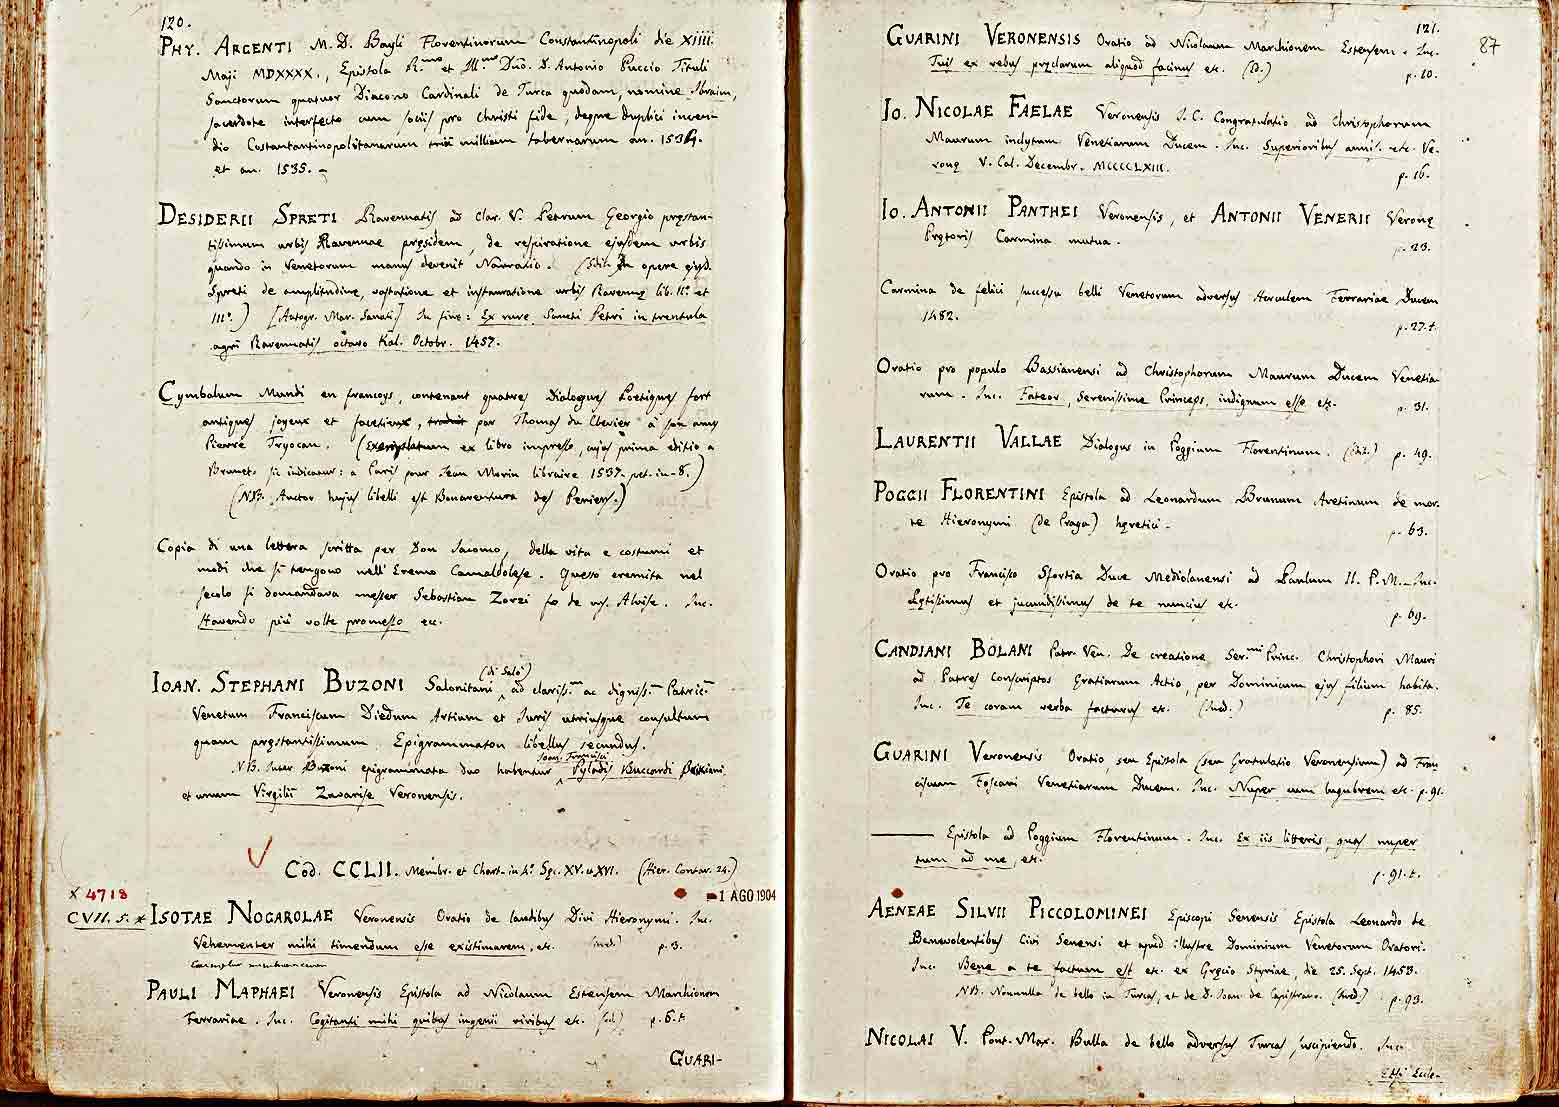 120.
PHY. ARGENTI M. D. Bayli Florentinorum Constantinopoli die XIIII.
Maji MDXXXX., Epistola R.mo et Ill.mo Dño. D. Antonio Puccio Tituli
Sanctorum quatuor Diacono Cardinali de Turca quodam, nomine Ibraim,
sacerdote interfecto cum sociis pro Christi fide, deque duplici incen-
dio Costantantinopolitanarum trium millium tabernarum an. 1534.
et an. 1535. -
DESIDERII SPRETI Ravennatis ad clar. V. Petrum Georgio pręstan-
tissimum urbis Ravennae pręsidem, de respiratione ejusdem urbis
quando in Venetorum manus devenit Narratio. (Edit. in opere ejusd.
Spreti de amplitudine, vastatione et instauratione urbis Ravennę lib. II.º et
III.º) [Autogr. Mar. Sanuti.] In fine: Ex rure Sancti Petri in trentula
agri Ravennatis octavo Kal. Octobr. 1457.
Cymbalum Mundi en francoys, contenant quatres Dialogues Poetiques fort
antiques joyeux et facetieux, traduit par Thomas du Clevier à son amy
Pierre Tryocan. (Exscriptum ex libro impresso, cujus prima editio a
Brunet sic indicatur: a Paris pour Jean Morin libraire 1537. pet. in-8.)
(NB. Auctor hujus libelli est Bonaventura des Periers.)
Copia di una lettera scritta per Don Jacomo, della vita e costumi et
modi che si tengono nell'Eremo Camaldolese. Questo eremita nel
secolo si domandava messer Sebastian Zorzi fo de ms. Alvise. Inc.
Havendo più volte promesso ec.
(di Salò)
IOAN. STEPHANI BUZONI Salonitani ad clariss.m ac digniss.m Patric.m
Venetum Franciscum Diedum Artium et Juris utriusque consultum
quam pręstantissimum Epigrammaton libellus secundus.
Joan. Francisci
NB. Inter Buzoni epigrammata duo habentur Pyladis Buccardi Brixiani,
et unum Virgilii Zavarise Veronensis.
Cod. CCLII. Membr. et Chart. in 4.º Sęc. XV. et XVI. (Hier. Contar. 24.)
X 4718
1 AGO 1904
CVII. 5. * ISOTAE NOGAROLAE Veronensis Oratio de laudibus Divi Hieronymi. Inc.
Vehementer mihi timendum esse existimarem, etc. (ined.) p. 3.
PAULI MAPHAEI Veronensis Epistola ad Nicolaum Estensem Marchionem
Ferrariae. Inc. Cogitanti mihi quibus ingenii viribus etc. (ed.) p. 6. t.
GUARI-
121.
87
GUARINI VERONENSIS Oratio ad Nicolaum Marchionem Estensem. Inc.
Tuis ex rebus pręclarum aliquod facinus etc. (Ed.) p. 10.
IO. NICOLAE FAELAE Veronensis J. C. Congratulatio ad Christophorum
Maurum inclytum Venetiarum Ducem. Inc. Superioribus annis etc. Ve-
ronę V. Cal. Decembr. MCCCCLXIII. p. 16.
IO. ANTONII PANTHEI Veronensis, et ANTONII VENERII Veronę
Prętoris Carmina mutua. p. 23.
Carmina de felici successu belli Venetorum adversus Herculem Ferrariae Ducem
1482. p. 27. t.
Oratio pro populo Bassianensi ad Christophorum Maurum Ducem Venetia-
rum. Inc. Fateor, Serenissime Princeps, indignum esse etc. p. 31.
LAURENTII VALLAE Dialogus in Poggium Florentinum. (Ed.) p. 49.
POGGII FLORENTINI Epistola ad Leonardum Brunum Aretinum de mor-
te Hieronymi (de Praga) hęretici. p. 63.
Oratio pro Francisco Sfortia Duce Mediolanensi ad Paulum II. P. M. Inc.
Lętissimus et jucundissimus de te nuncius etc. p. 69.
CANDIANI BOLANI Patr. Ven. De creatione Ser.mi Princ. Christophori Mauri
ad Patres Conscriptos Gratiarum Actio, per Dominicum ejus filium habita.
Inc. Te coram verba facturus etc. (Ined.) p. 85.
GUARINI Veronensis Oratio, seu Epistola (seu Gratulatio Veronensium) ad Fran-
ciscum Foscari Venetiarum Ducem. Inc. Nuper cum lugubrem etc. p. 91.
——— Epistola ad Poggium Florentinum. Inc. Ex iis litteris, quas nuper
tum ad me, etc. p. 91. t.
AENEAE SILVII PICCOLOMINEI Episcopi Senensis Epistola Leonardo de
Benevolentibus Civi Senensi et apud illustre Dominium Venetorum Oratori.
Inc. Bene a te factum est etc. ex Gręcio Styriae, die 25. Sept. 1453.
NB. Nonnulla de bello in Turcas, et de B. Joan. de Capistrano. (Ined.) p. 93.
NICOLAI V. Pont. Max. Bulla de bello adversus Turcas suscipiendo. Inc.
Etsi Eccle-